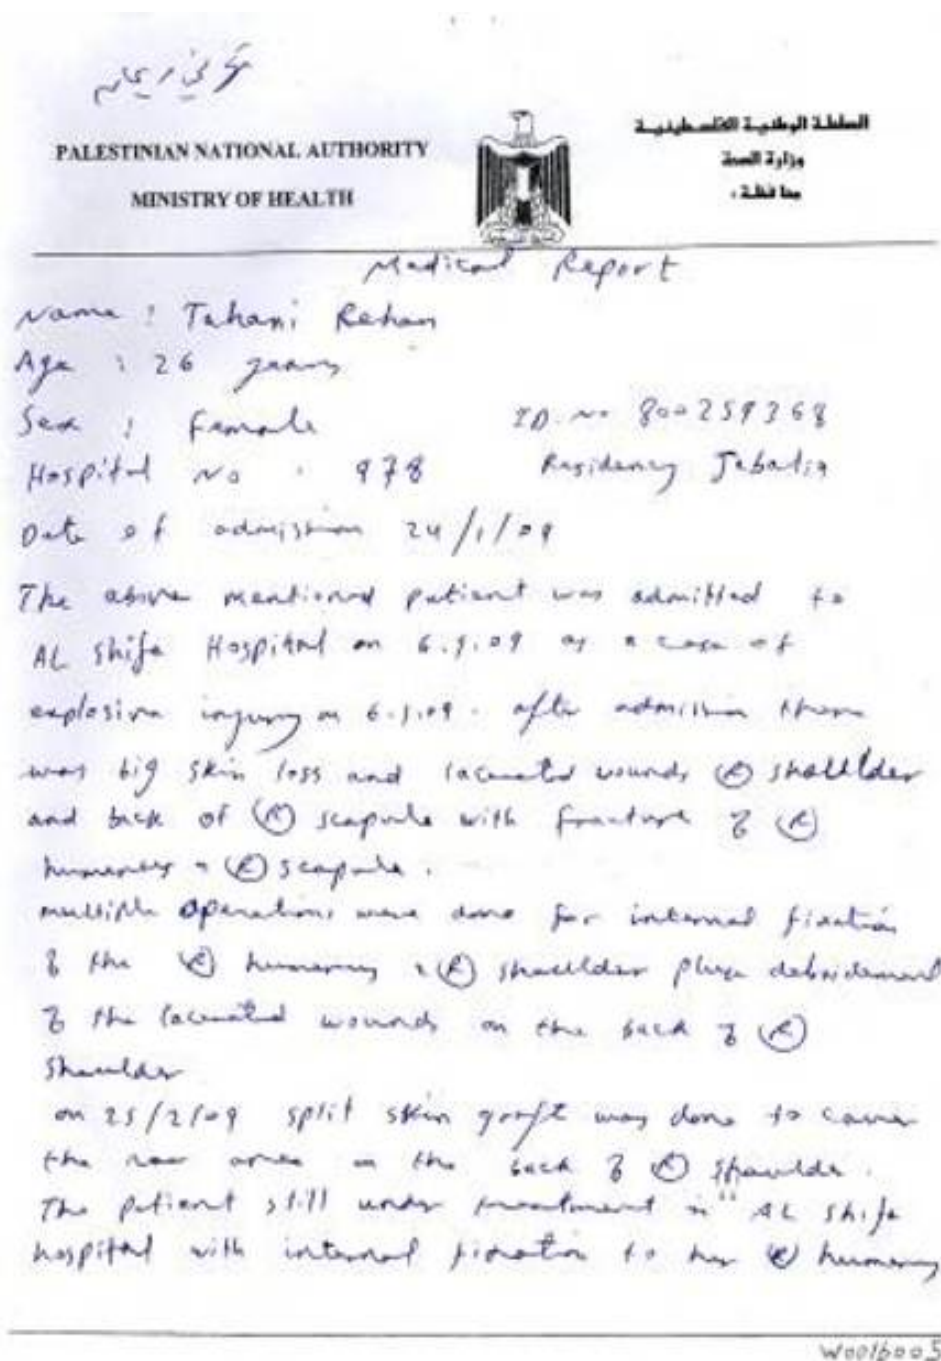 PALESTINIAN NATIONAL AUTHORITY
MINISTRY OF HEALTH
السلطة الوطنية الفلسطينية
وزارة الصحة
محافظة :
Medical Report
Name : Tahani Rehan
Age : 26 years
Sex : Female ID. no 800259368
Hospital No : 978 Residency Jabalia
Date of admission 24/1/09
The above mentioned patient was admitted to
AL Shifa Hospital on 6.1.09 as a case of
explosive injury on 6.1.09. after admission there
was big skin loss and lacerated wounds Ⓡ shoullder
and back of Ⓡ scapula with fracture of Ⓡ
humerus + Ⓡ scapula.
multiple operations were done for internal fixation
of the Ⓡ humerus + Ⓡ shoullder plus debridement
of the lacerated wounds on the back of Ⓡ
shoulder
on 25/2/09 split skin graft was done to cover
the raw area on the back of Ⓡ shoulder.
The patient still under treatment in AL Shifa
hospital with internal fixation to her Ⓡ humerus
W0016005